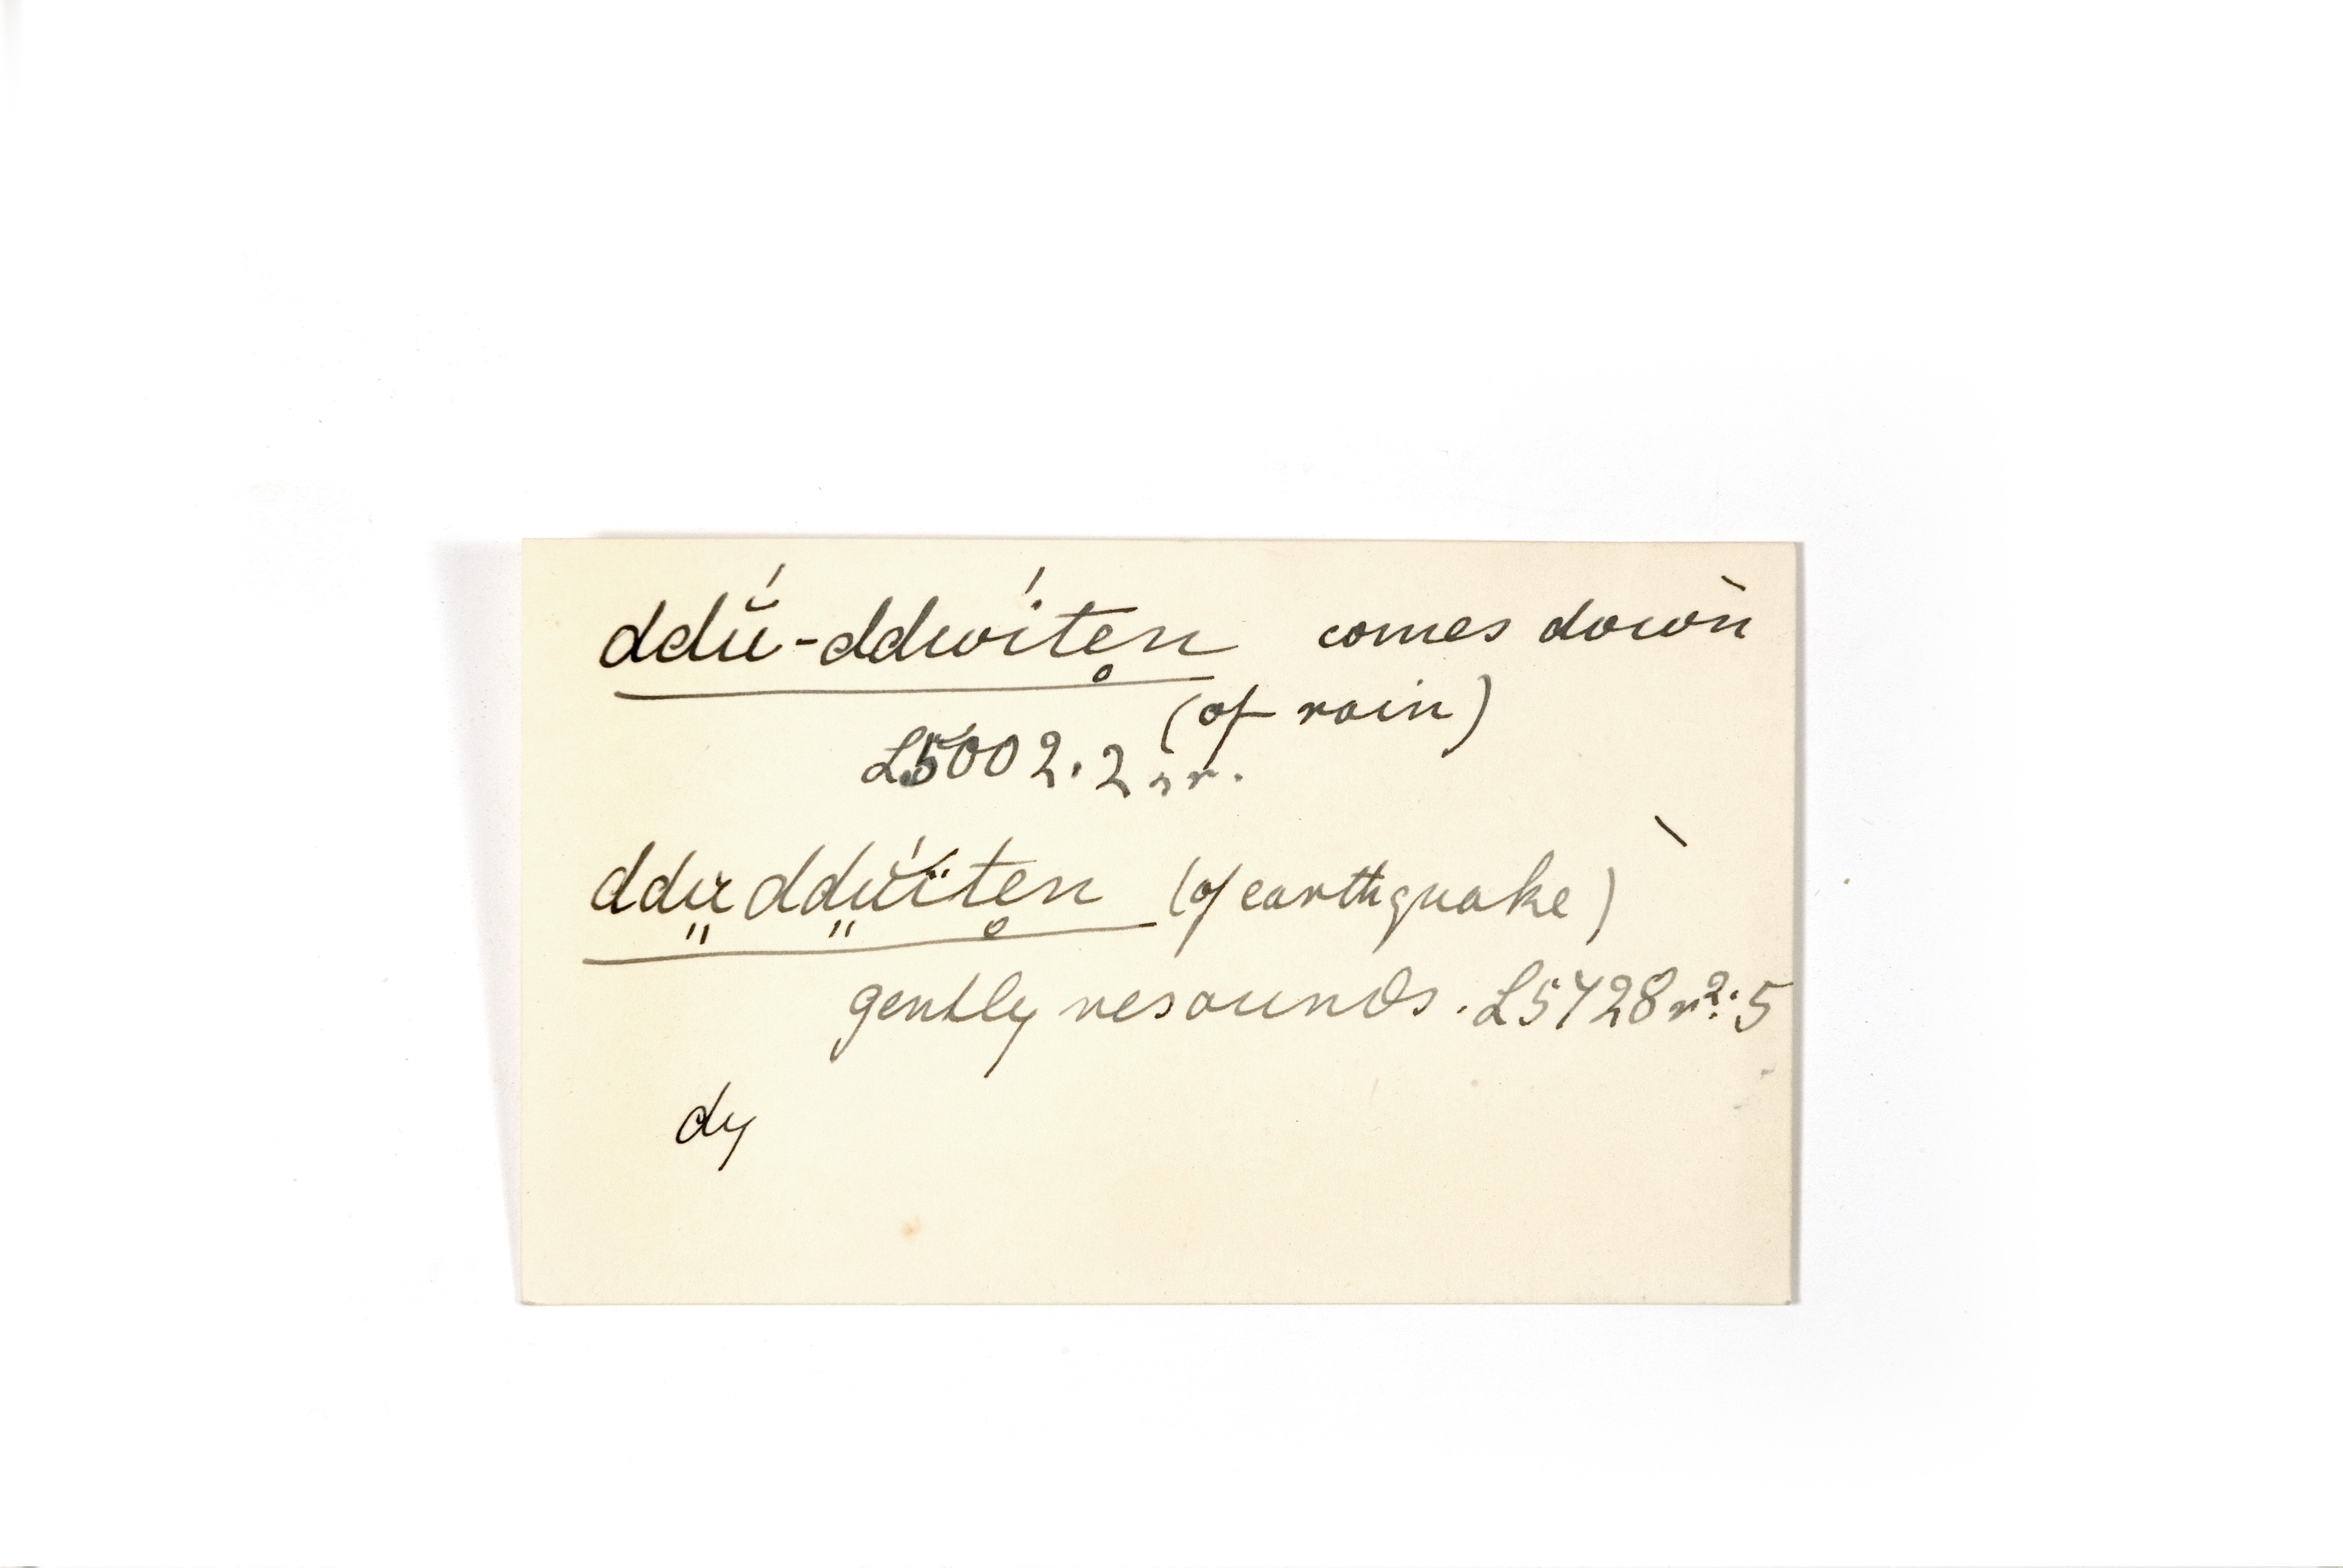 ddŭ́-ddwíte̥n comes down
(of rain)
L5002.2 r.
ddṳddṳ́ïte̥n (of earthquake)
gently resounds. L5428 r2.5
dy